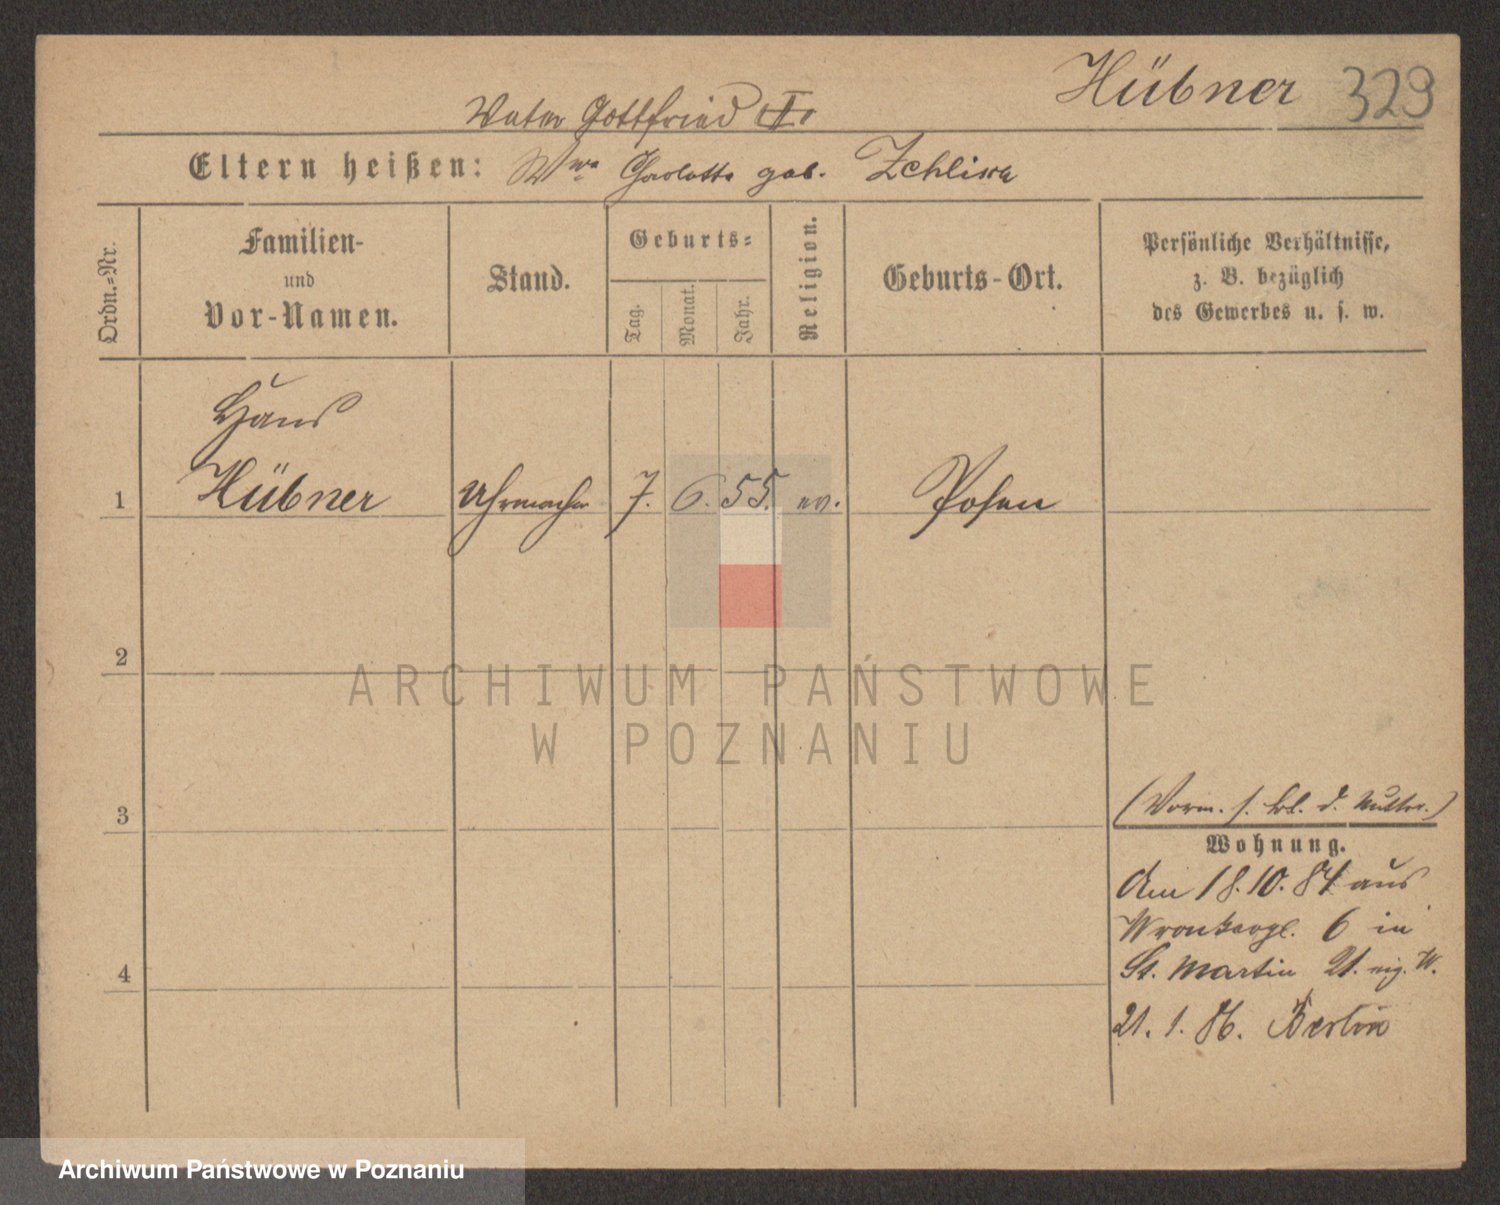 Hübner 329
Vater Gottfried (†)
Eltern heißen: Wwe Charlotte geb. Zchliwa
Ordn.-Nr.
Familien-
und
Vor-Namen.
Stand.
Geburts-
Tag.
Monat.
Jahr.
Religion.
Geburts-Ort.
Persönliche Verhältnisse,
z. B. bezüglich
des Gewerbes u. s. w.
Hans
1 Hübner Uhrmacher 7. 6. 55. ev. Posen
2
3
4
(Vorm. s. bl. d. Mutter.)
Wohnung.
Am 18.10.84 aus
Wronkergl. 6 in
St. Martin 21. eig. W.
21. 1. 86. Berlin
ARCHIWUM PAŃSTWOWE
W POZNANIU
Archiwum Państwowe w Poznaniu